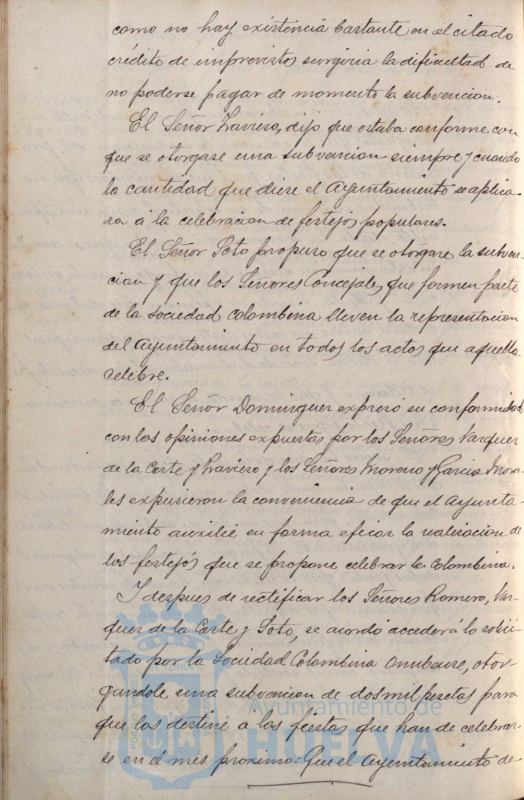 como no hay existencia bastante en el citado
crédito de imprevistos surgiria la dificultad de
no poderse pagar de momento la subvencion.
El Señor Traviero, dijo que estaba conforme con
que se otorgase una subvencion siempre y cuando
la cantidad que diese el Ayuntamiento se aplica-
ra á la celebracion de festejos populares.
El Señor Soto propuso que se otorgare la subven-
cion y que los Señores Concejales, que formen parte
de la Sociedad Colombina lleven la representacion
del Ayuntamiento en todos los actos que aquella
celebre.
El Señor Dominguez expresó su conformidad
con las opiniones expuestas por los Señores Vazquez
de la Corte y Traviero y los Señores Moreno y Garcia Mora-
les expusieron la conveniencia de que el Ayunta-
miento auxilie en forma eficaz la realizacion de
los festejos que se propone celebrar la Colombina.
I despues de rectificar los Señores Romero, Vaz-
quez de la Corte y Soto, se acordó acceder á lo solici-
tado por la Sociedad Colombina Onubense, otor-
gandole una subvencion de dos mil pesetas para
que las destine a las fiestas que han de celebrar-
se en el mes proximo. Que el Ayuntamiento de-
Ayuntamiento de
HUELVA